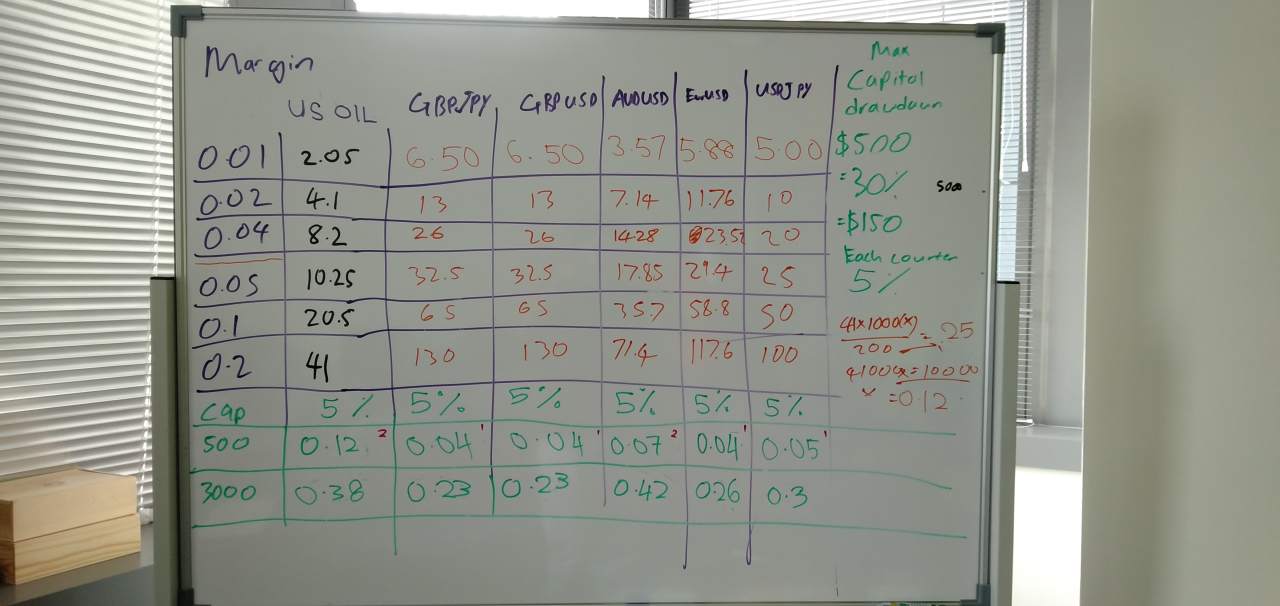 Margin
US OIL GBPJPY GBPUSD AUDUSD EurUSD USDJPY
0.01 2.05 6.50 6.50 3.57 5.88 5.00
0.02 4.1 13 13 7.14 11.76 10
0.04 8.2 26 26 14.28 23.52 20
0.05 10.25 32.5 32.5 17.85 29.4 25
0.1 20.5 65 65 35.7 58.8 50
0.2 41 130 130 71.4 117.6 100
Cap 5% 5% 5% 5% 5% 5%
500 0.12 2 0.04 1 0.04 1 0.07 2 0.04 1 0.05 1
3000 0.38 0.23 0.23 0.42 0.26 0.3
Max
Capitol
drawdown
$500
=30% 500
=$150
Each counter
5%
41x1000(x) = 25
200
4100x = 10000
x = 0.12